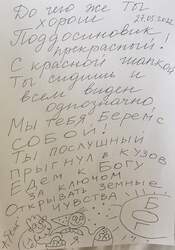 До чего же Ты
хорош
27.05.2022
Поддосиновик
прекрасный!
С красной шапкой
Ты сидишь и
всем виден
однозначно,
Мы Тебя берём с
СОБОЙ!
Ты послушный
прыгнул в кузов
Едем к Богу
ключом
Открывать земные
чувства
БОГ